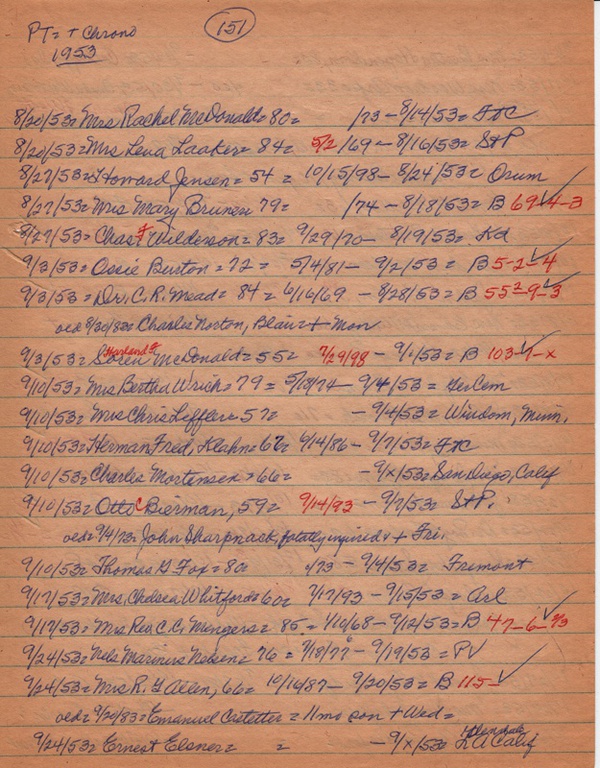 PT= + Chrono (151)
1953
8/20/53= Mrs Rachel McDonald= 80= /73 - 8/14/53= FTC
8/20/53= Mrs Lena Laaker= 84= 5/2/69 - 8/16/53= St P
8/27/53= Howard Jensen= 54 = 10/15/98 - 8/24/53= Orum
8/27/53= Mrs Mary Brunen 79= /74 - 8/18/53= B 69-4-3
8/27/53= Chas F Wilderson= 83= 9/29/70- 8/19/53= Kd
9/3/53= Ossie Burton = 72 = 5/4/81 - 9/2/53 = B 5-2-4
9/3/53= Dr. C. R. Mead= 84= 6/16/69 - 8/28/53= B 55²-9-3
oed= 8/30/83= Charles Norton, Blair= + Mon
9/3/53= Soren Harland F McDonald= 55= 7/29/98 - 9/1/53= B 103-7-x
9/10/53= Mrs Bertha Wrich= 79 = 5/18/74 - 9/4/53 = Ger Cem
9/10/53= Mrs Chris Leffler= 57= - 9/4/53= Windom, Minn.
9/10/53= Herman Fred, Klahn= 67= 6/14/86 - 9/7/53= FTC
9/10/53= Charles Mortensen= 66= - 9/x/53= San Diego, Calif
9/10/53= Otto C Bierman, 59= 9/14/93 - 9/7/53= St P.
oed= 9/4/73= John Sharpnack, fatally injured + Fri.
9/10/53= Thomas G Fox= 80= /73 - 9/4/53= Fremont
9/17/53= Mrs. Chelsea Whitford= 60= 7/17/93 - 9/15/53= Arl
9/17/53= Mrs Rev. C. C. Mengers= 85= 1/10/68 - 9/12/53= B 47-6-2/3
9/24/53= Nels Marinus Nelsen= 76 = 7/18/77 - 9/19/53= PV
9/24/53= Mrs R. G Allen, 66= 10/16/87 - 9/20/53= B 115-
oed= 9/20/83= Emanuel Castetter= 11mo son + Wed=
9/24/53= Ernest Elsner= = - 9/x/53= Glendale LA Calif